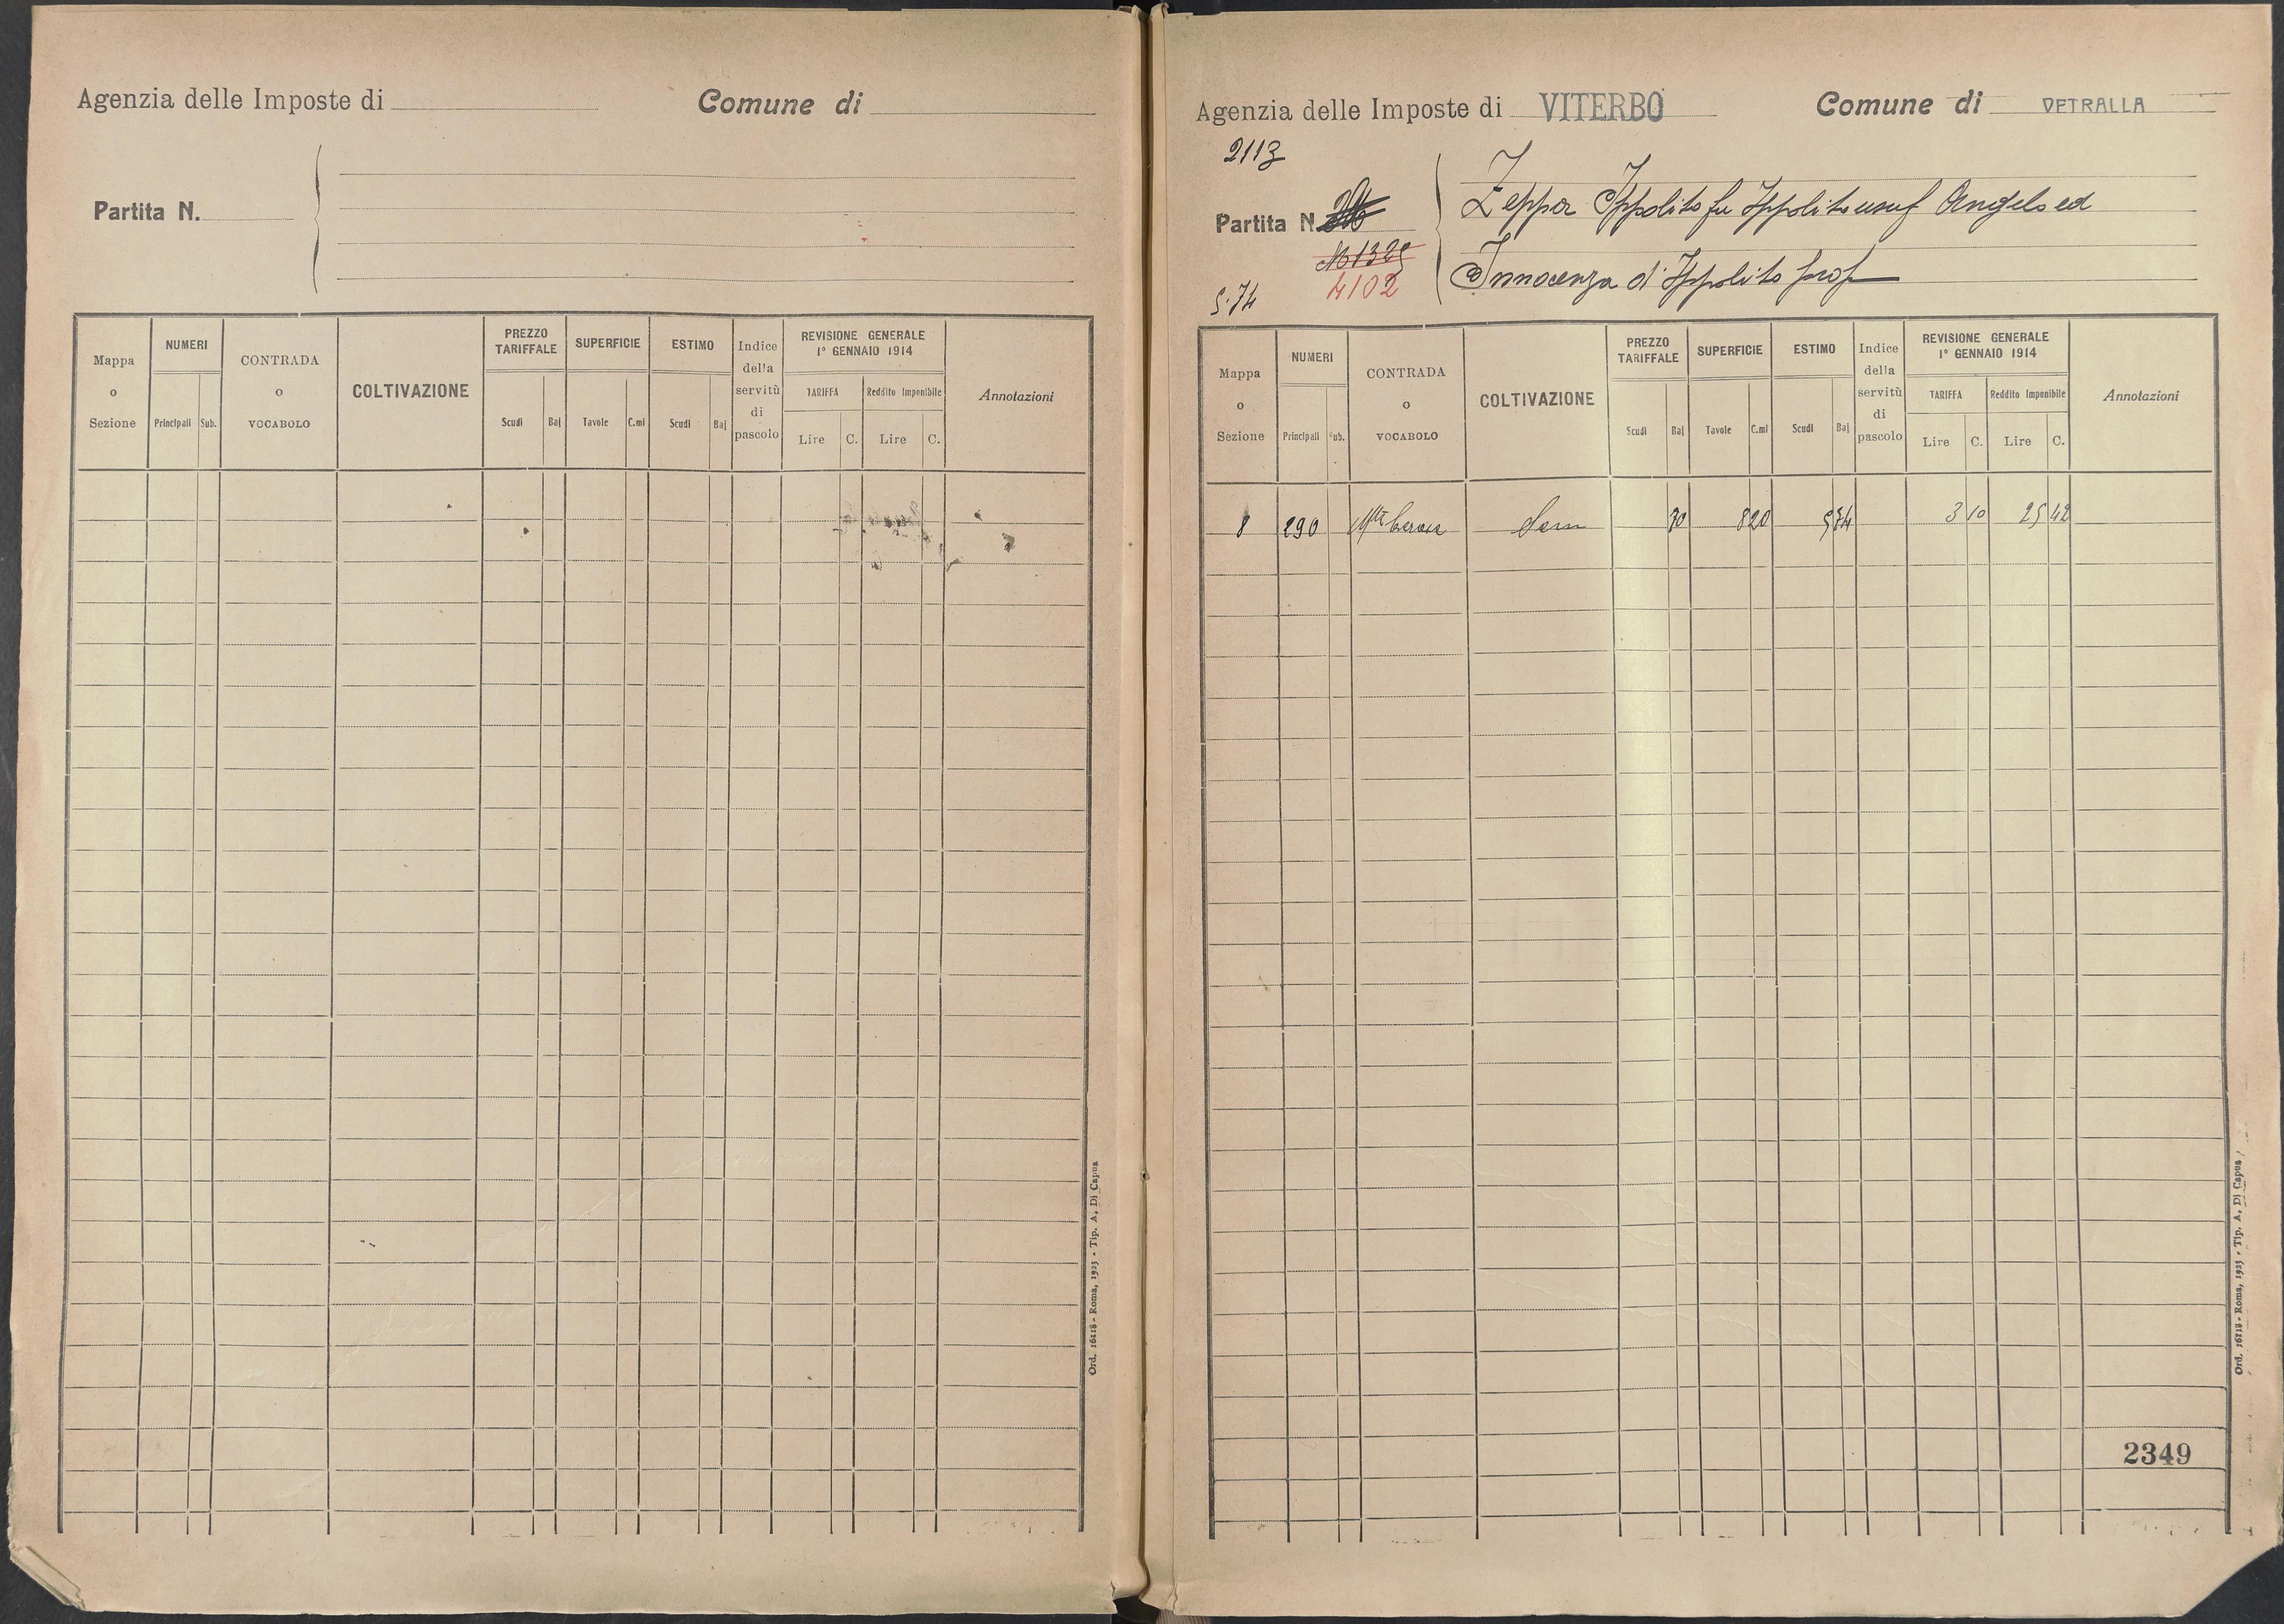 Agenzia delle Imposte di
Comune di
Partita N.
Mappa o Sezione
NUMERI
Principali Sub.
CONTRADA o VOCABOLO
COLTIVAZIONE
PREZZO TARIFFALE
Scudi Baj
SUPERFICIE
Tavole C.mi
ESTIMO
Scudi Baj
Indice della servitù di pascolo
REVISIONE GENERALE
1° GENNAIO 1914
TARIFFA Reddito Imponibile
Lire C. Lire C.
Annotazioni
Ord. 16118 - Roma, 1923 - Tip. A. Di Capua
Agenzia delle Imposte di VITERBO
Comune di VETRALLA
2113
Partita N.
N 1325
4102
5.74
Zeppa Ippolito fu Ippolito usuf Angelo ed
Innocenza d'Ippolito prop
Mappa o Sezione
NUMERI
Principali Sub.
CONTRADA o VOCABOLO
COLTIVAZIONE
PREZZO TARIFFALE
Scudi Baj
SUPERFICIE
Tavole C.mi
ESTIMO
Scudi Baj
Indice della servitù di pascolo
REVISIONE GENERALE
1° GENNAIO 1914
TARIFFA Reddito Imponibile
Lire C. Lire C.
Annotazioni
8 290 Sem 70 8 20 5 74 3 10 25 42
2349
Ord. 16118 - Roma, 1923 - Tip. A. Di Capua